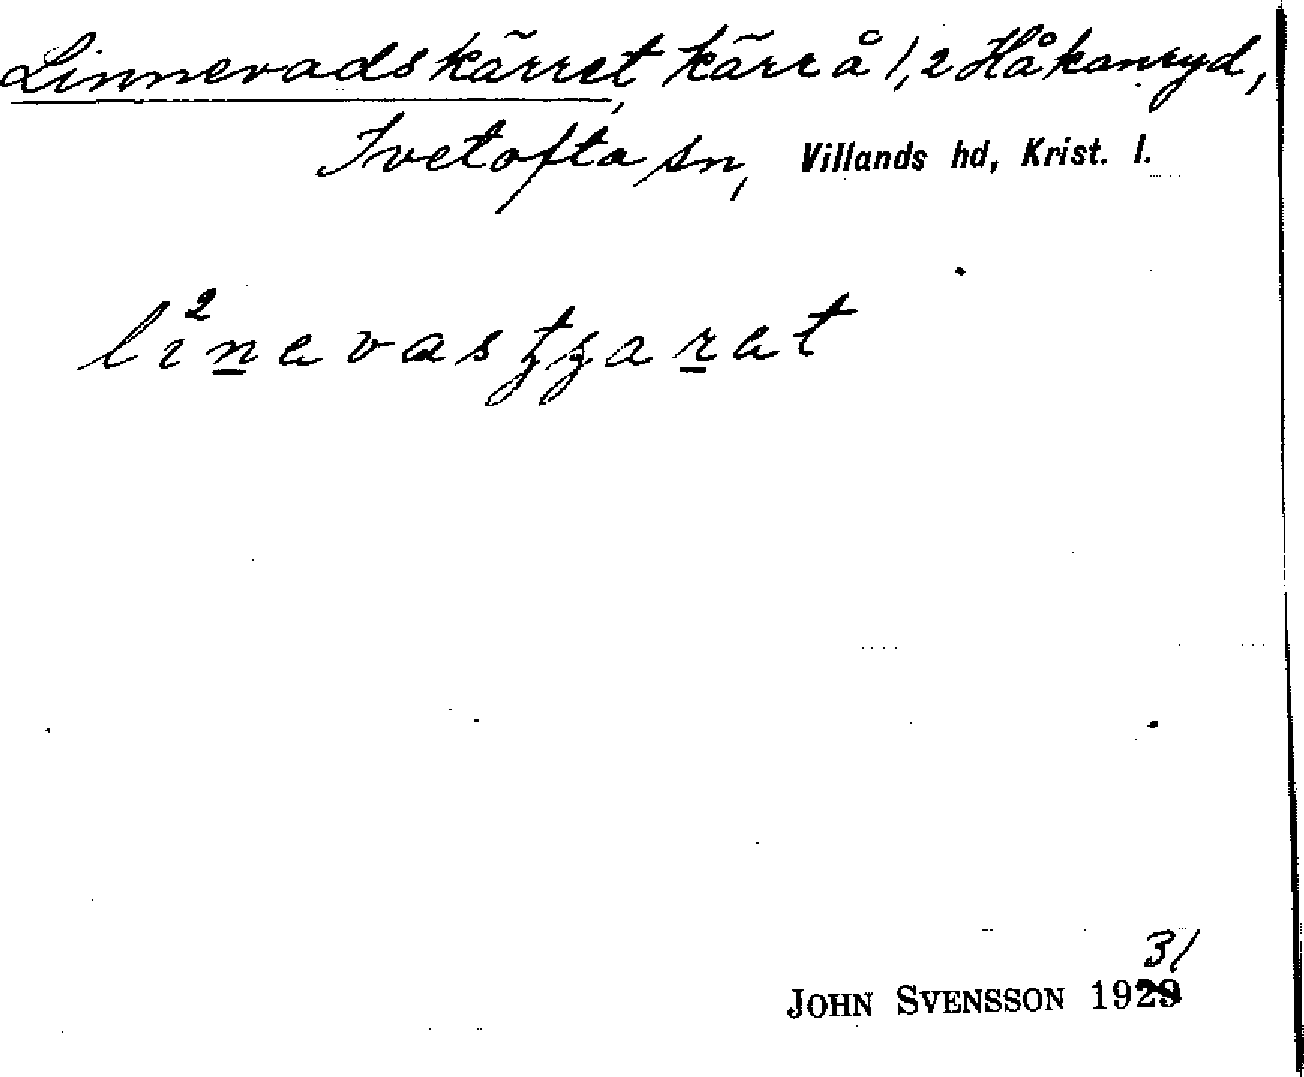 Linnevadskärret, kärr å 1,2 Håkanryd,
Ivetofta sn, Villands hd, Krist. l.
JOHN SVENSSON 1931